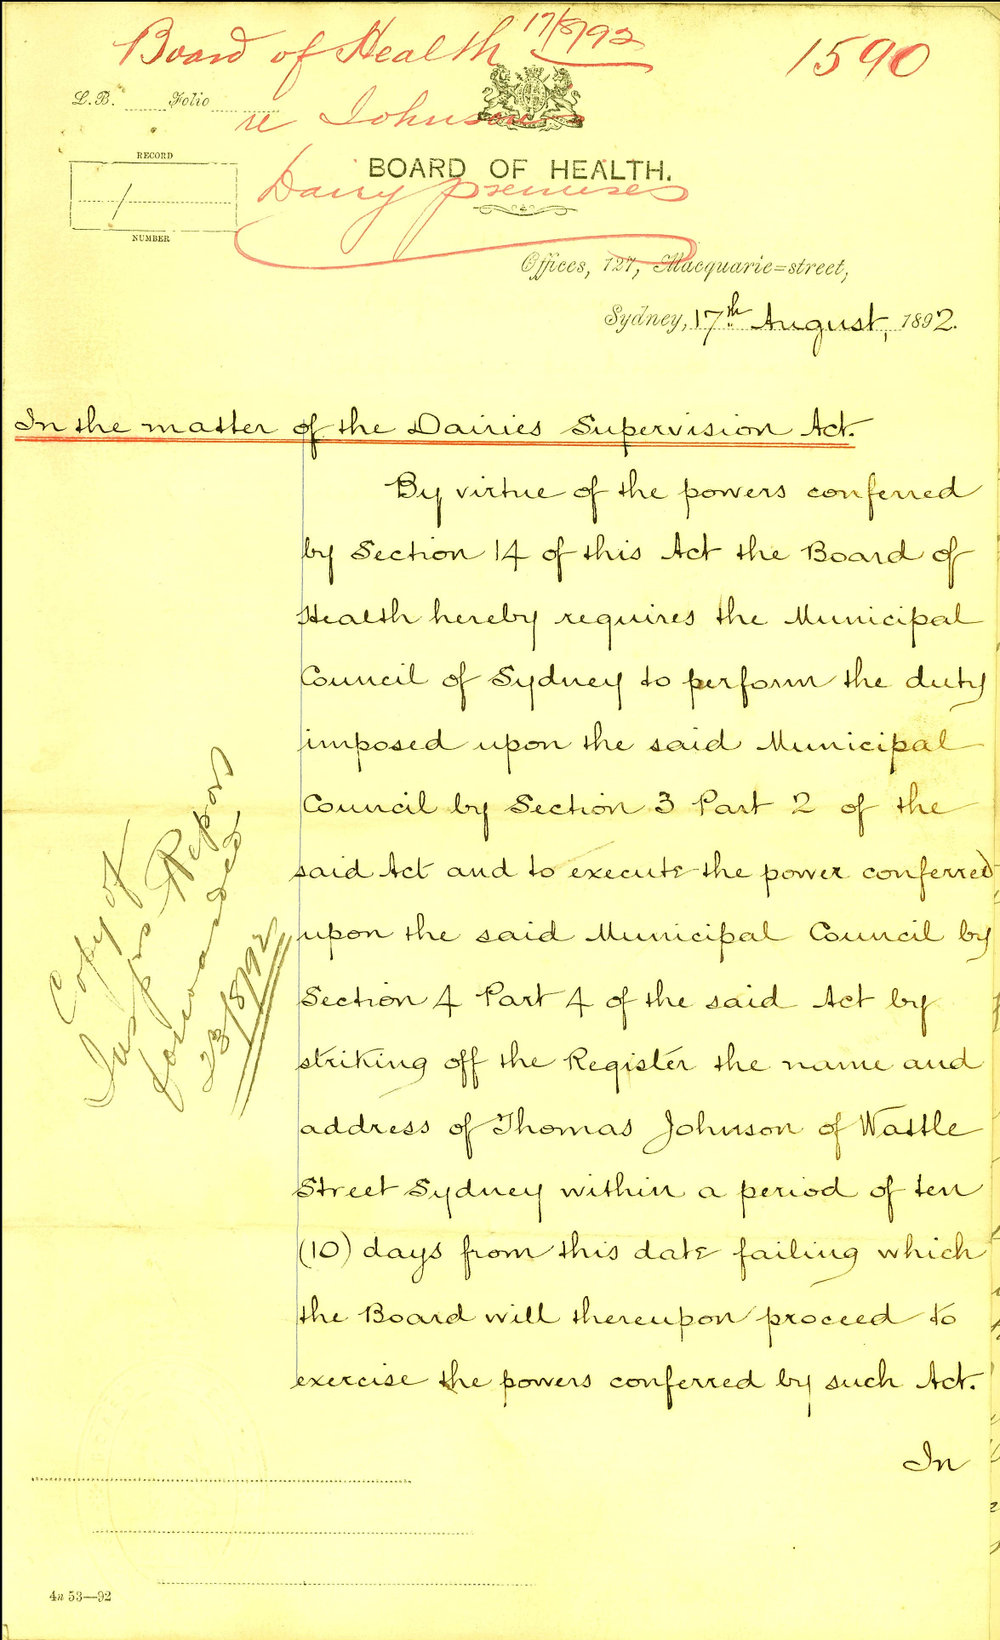 Board of Health 17/8/92
1590
L.B. Folio
re Johnson
RECORD
BOARD OF HEALTH.
Dairy premises
1
NUMBER
Offices, 127, Macquarie=street,
Sydney, 17th August, 1892.
In the matter of the Dairies Supervision Act.
By virtue of the powers conferred
by Section 14 of this Act the Board of
Health hereby requires the Municipal
Council of Sydney to perform the duty
imposed upon the said Municipal
Council by Section 3 Part 2 of the
said Act and to execute the power conferred
upon the said Municipal Council by
Section 4 Part 4 of the said Act by
striking off the Register the name and
address of Thomas Johnson of Wattle
Street Sydney within a period of ten
(10) days from this date failing which
the Board will thereupon proceed to
exercise the powers conferred by such Act.
In
Copy of
Insprs Report
forwarded
23/8/92
4a 53—92